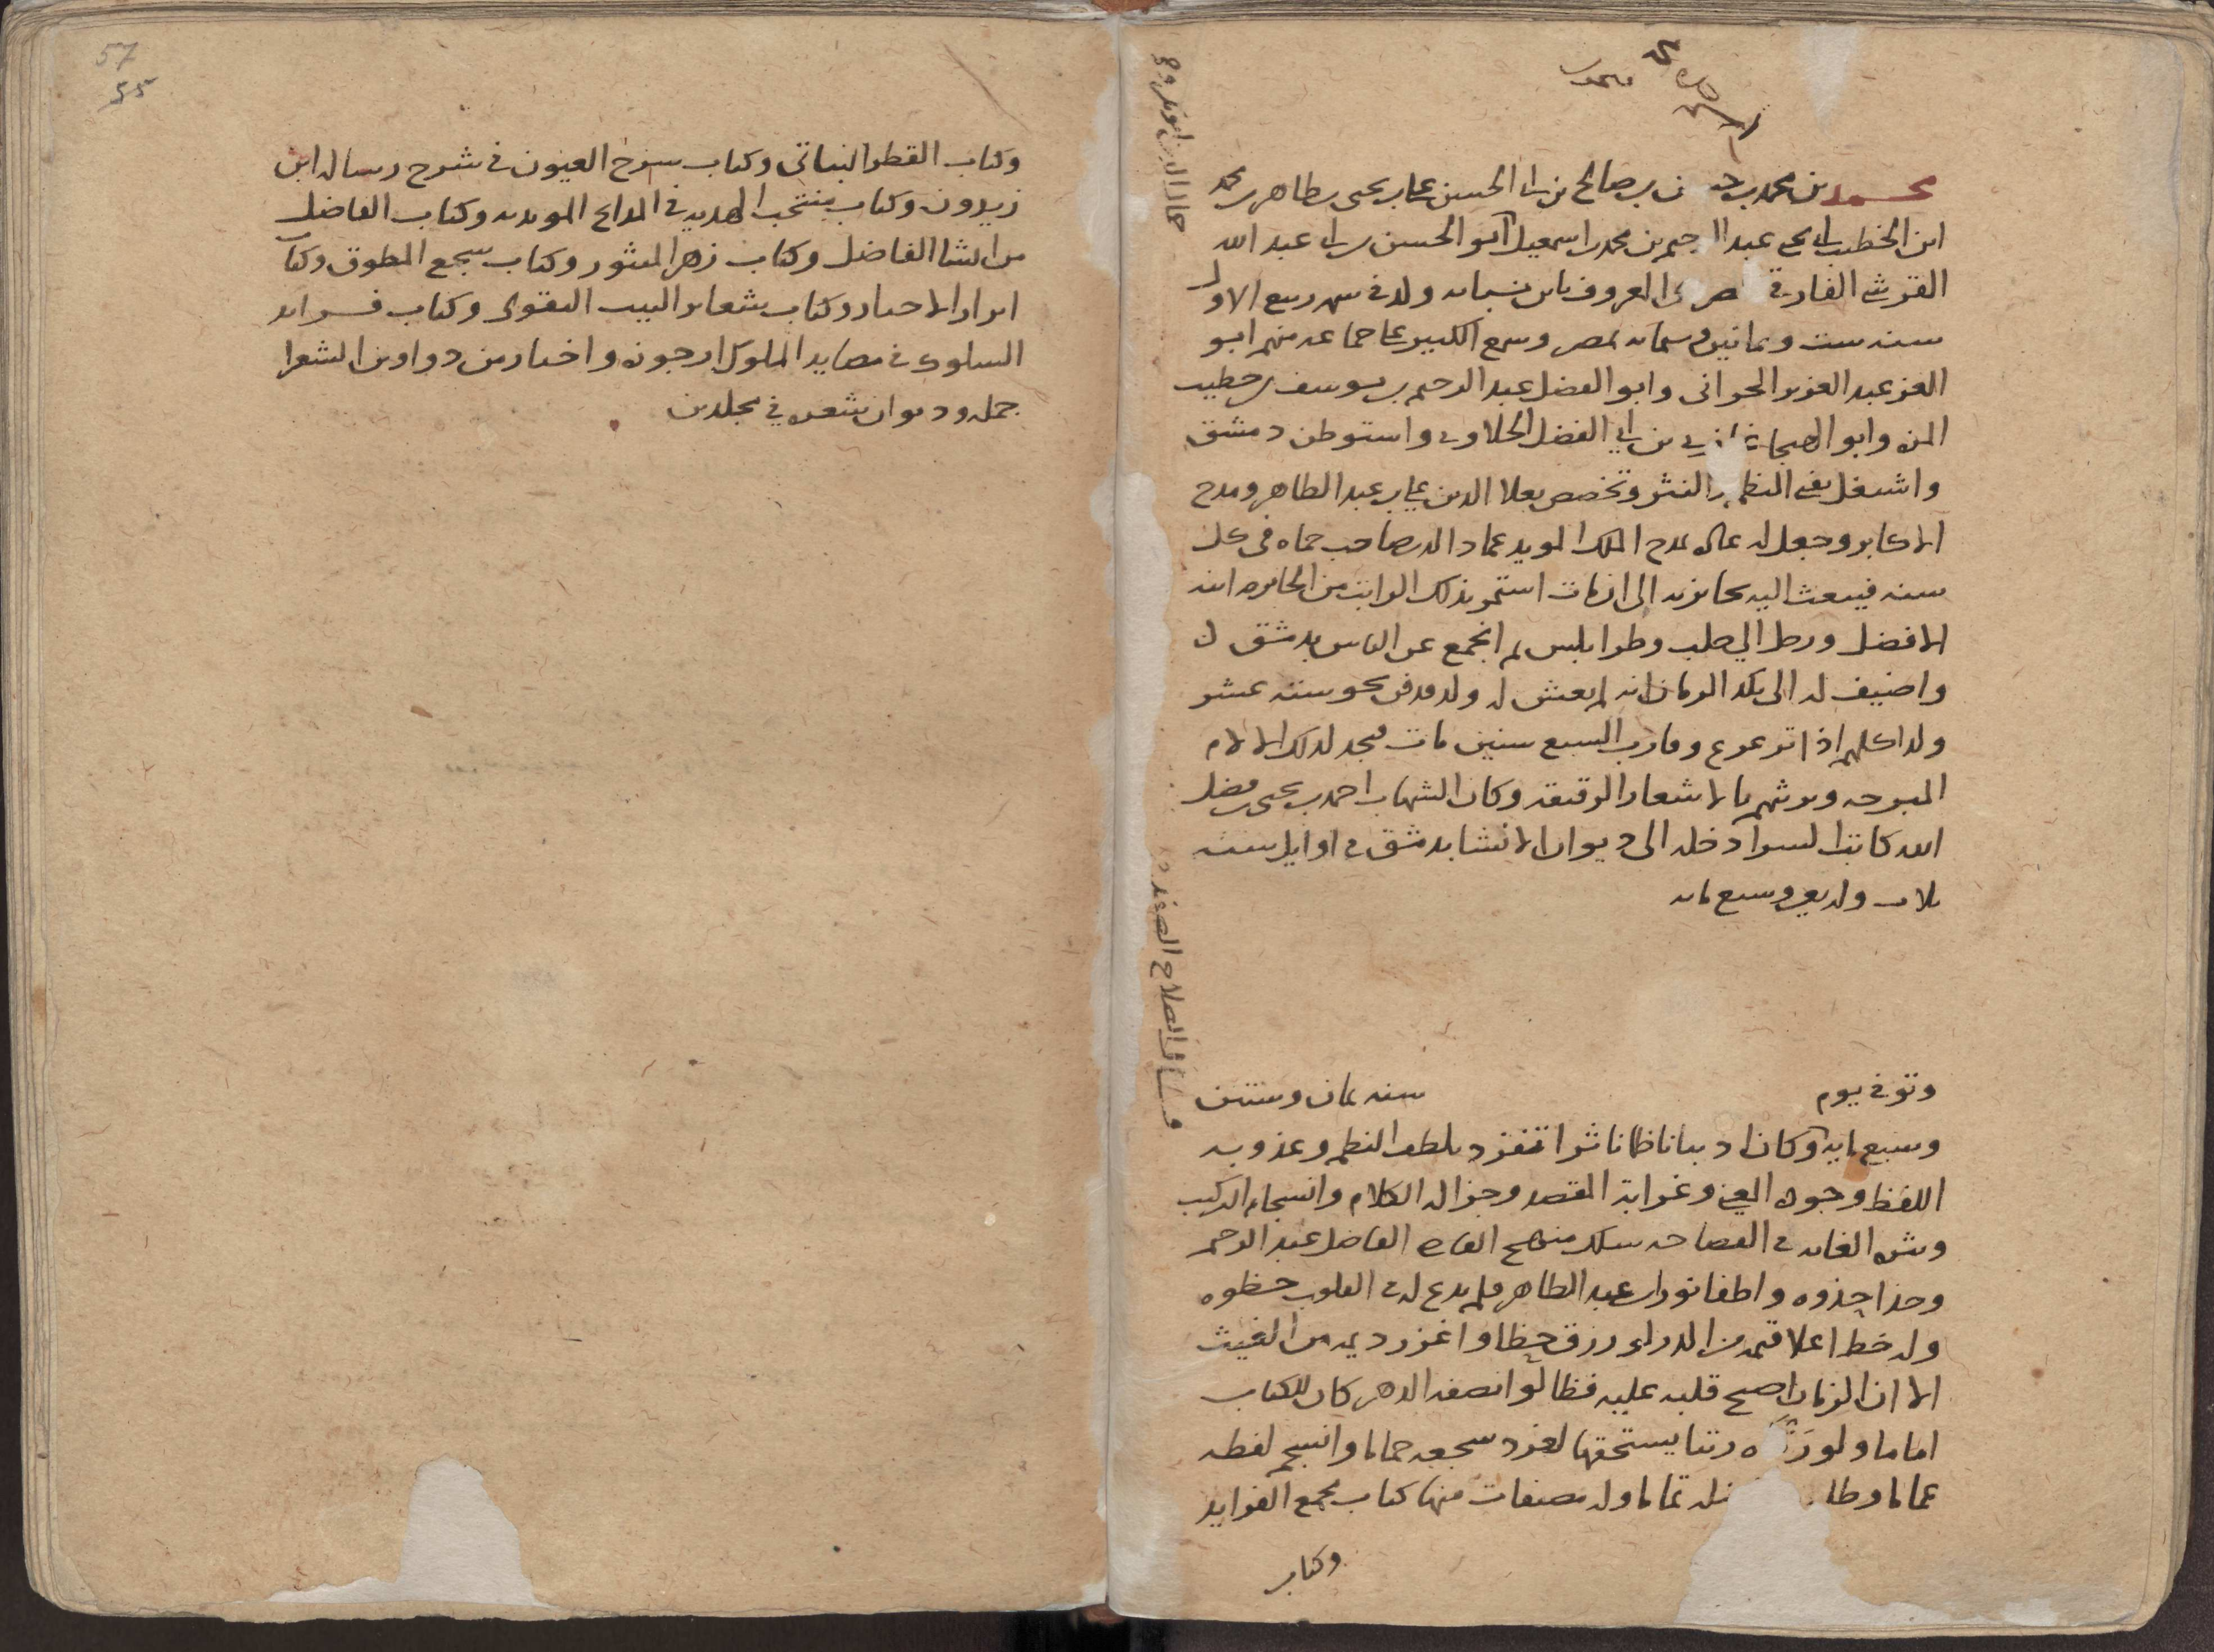 محمد بن محمد بن ن بن صالح بن ابي الحسن علي بن يحيى بن طاهر بن محمد
ابن الخطيب ابي يحيى عبد الرحيم بن محمد بن اسمعيل ابو الحسن بن ابي عبد الله
القرشي الفارقي المعروف بابن نباته ولد في شهر ربيع الاول
سنه ست وثمانين وستمائه بمصر وسمع الكبير علي جماعه منهم ابو
العز عبد العزيز الحراني وابو الفضل عبد الرحيم بن يوسف بن خطيب
المزه وابو الهيجا غازي بن ابي الفضل الحلاوي واستوطن دمشق
واشتغل بفني النظم والنثر وتخصص بعلا الدين علي بن عبد الظاهر ومدح
الاكابر وجعل له عاده بمدح الملك المويد عماد الدين صاحب حماه في كل
سنه فيبعث اليه بجائزته الى ان مات استمر بذلك الراتب من الجائزه ابنه
الافضل ورحل الي حلب وطرابلس ثم انجمع عن الناس بدمشق
واضيف له الى نكد الزمان انه لم يعش له ولد فدفن نحو ستة عشر
ولدا كلهم اذا ترعرع وقارب السبع سنين مات فيجد لذلك الالام
المبرحه ويرثهم بالاشعار الرقيقه وكان الشهاب احمد بن يحيى بن فضل
الله كاتب السر ادخله الى ديوان الانشا بدمشق في اوايل سنه
ثلاث واربعين وسبع مائه
وتوفي يوم سنه ثمان وستين
وسبع مايه وكان اديبا ناظما ناثرا تفرد بلطف النظم وعذوبه
اللفظ وجوده المعني وغرابة المقصد وجزاله الكلام وانسجام التركيب
ونثره الغايه في الفصاحه سلك منهج القاضي الفاضل عبد الرحيم
وحذا حذوه واطفا نور ابن عبد الظاهر ولم يدع له في القلوب حظوه
وله خط اعلا قيمه من الدر لو رزق حظا واغزر ديمه من الغيث
الا ان الزمان اصبح قلبه عليه فظا لو انصفه الدهر كان للكتاب
اماما ولو رتبا يستحقها لغرد سجعه حماما وانسجم لفظه
غماما تماما وله مصنفات منها كتاب مجمع الفوايد
وكتاب
وكتاب القطر النباتي وكتاب سرح العيون في شرح رساله ابن
زيدون وكتاب منتخب الهديه في المدايح المويديه وكتاب الفاضل
من انشا الفاضل وكتاب زهر المنثور وكتاب سجع المطوق وكتاب
ابراز الاخبار وكتاب شعاير البيت التقوي وكتاب فرايد
السلوك في مصايد الملوك ارجوزه واختار من دواوين الشعرا
جمله وديوان شعره في مجلدين
57
55